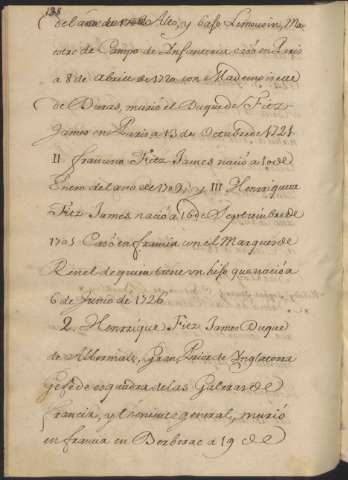 198
del año de 1720 Alto, y baso Lemouoin, Ma
estro de Campo de Infanteria casó en Paris
a 8 de Abril de 1720 con Mademoiselle
de Duras, murió el Duque de Fitz
James en Paris a 13 de Octubre de 1721
II francisco Fitz James nació a 10 de
Enero del año de 1709, y III Henriqueta
Fitz James nació a 16 de Septiembre de
1705 Casó en francia con el Marques de
Renel de quien tiene un hijo que nació a
6 de Junio de 1726
2. Henrrique Fitz James Duque
de Albermale, Gran Prior de Inglaterra
Gefe de esquadra de las Galeras de
francia, y theniente general, murió
en francia en a 19 de